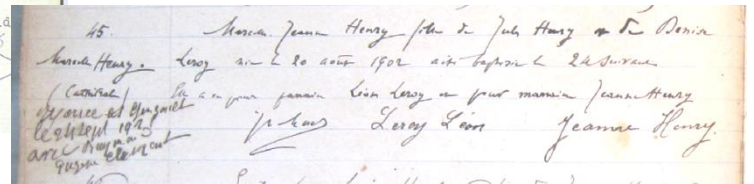 45.
Marcelle Henry.
(Cathédrale)
le 9 sept 192
avec Raymond
Eugène Clément
Marcelle Jeanne Henry fille de Jules Henry et de Denise
Leroy née le 20 août 1902 a été baptisée le 24 suivant
Elle a eu pour parrain Léon Leroy et pour marraine Jeanne Henry
Leroy Léon
Jeanne Henry